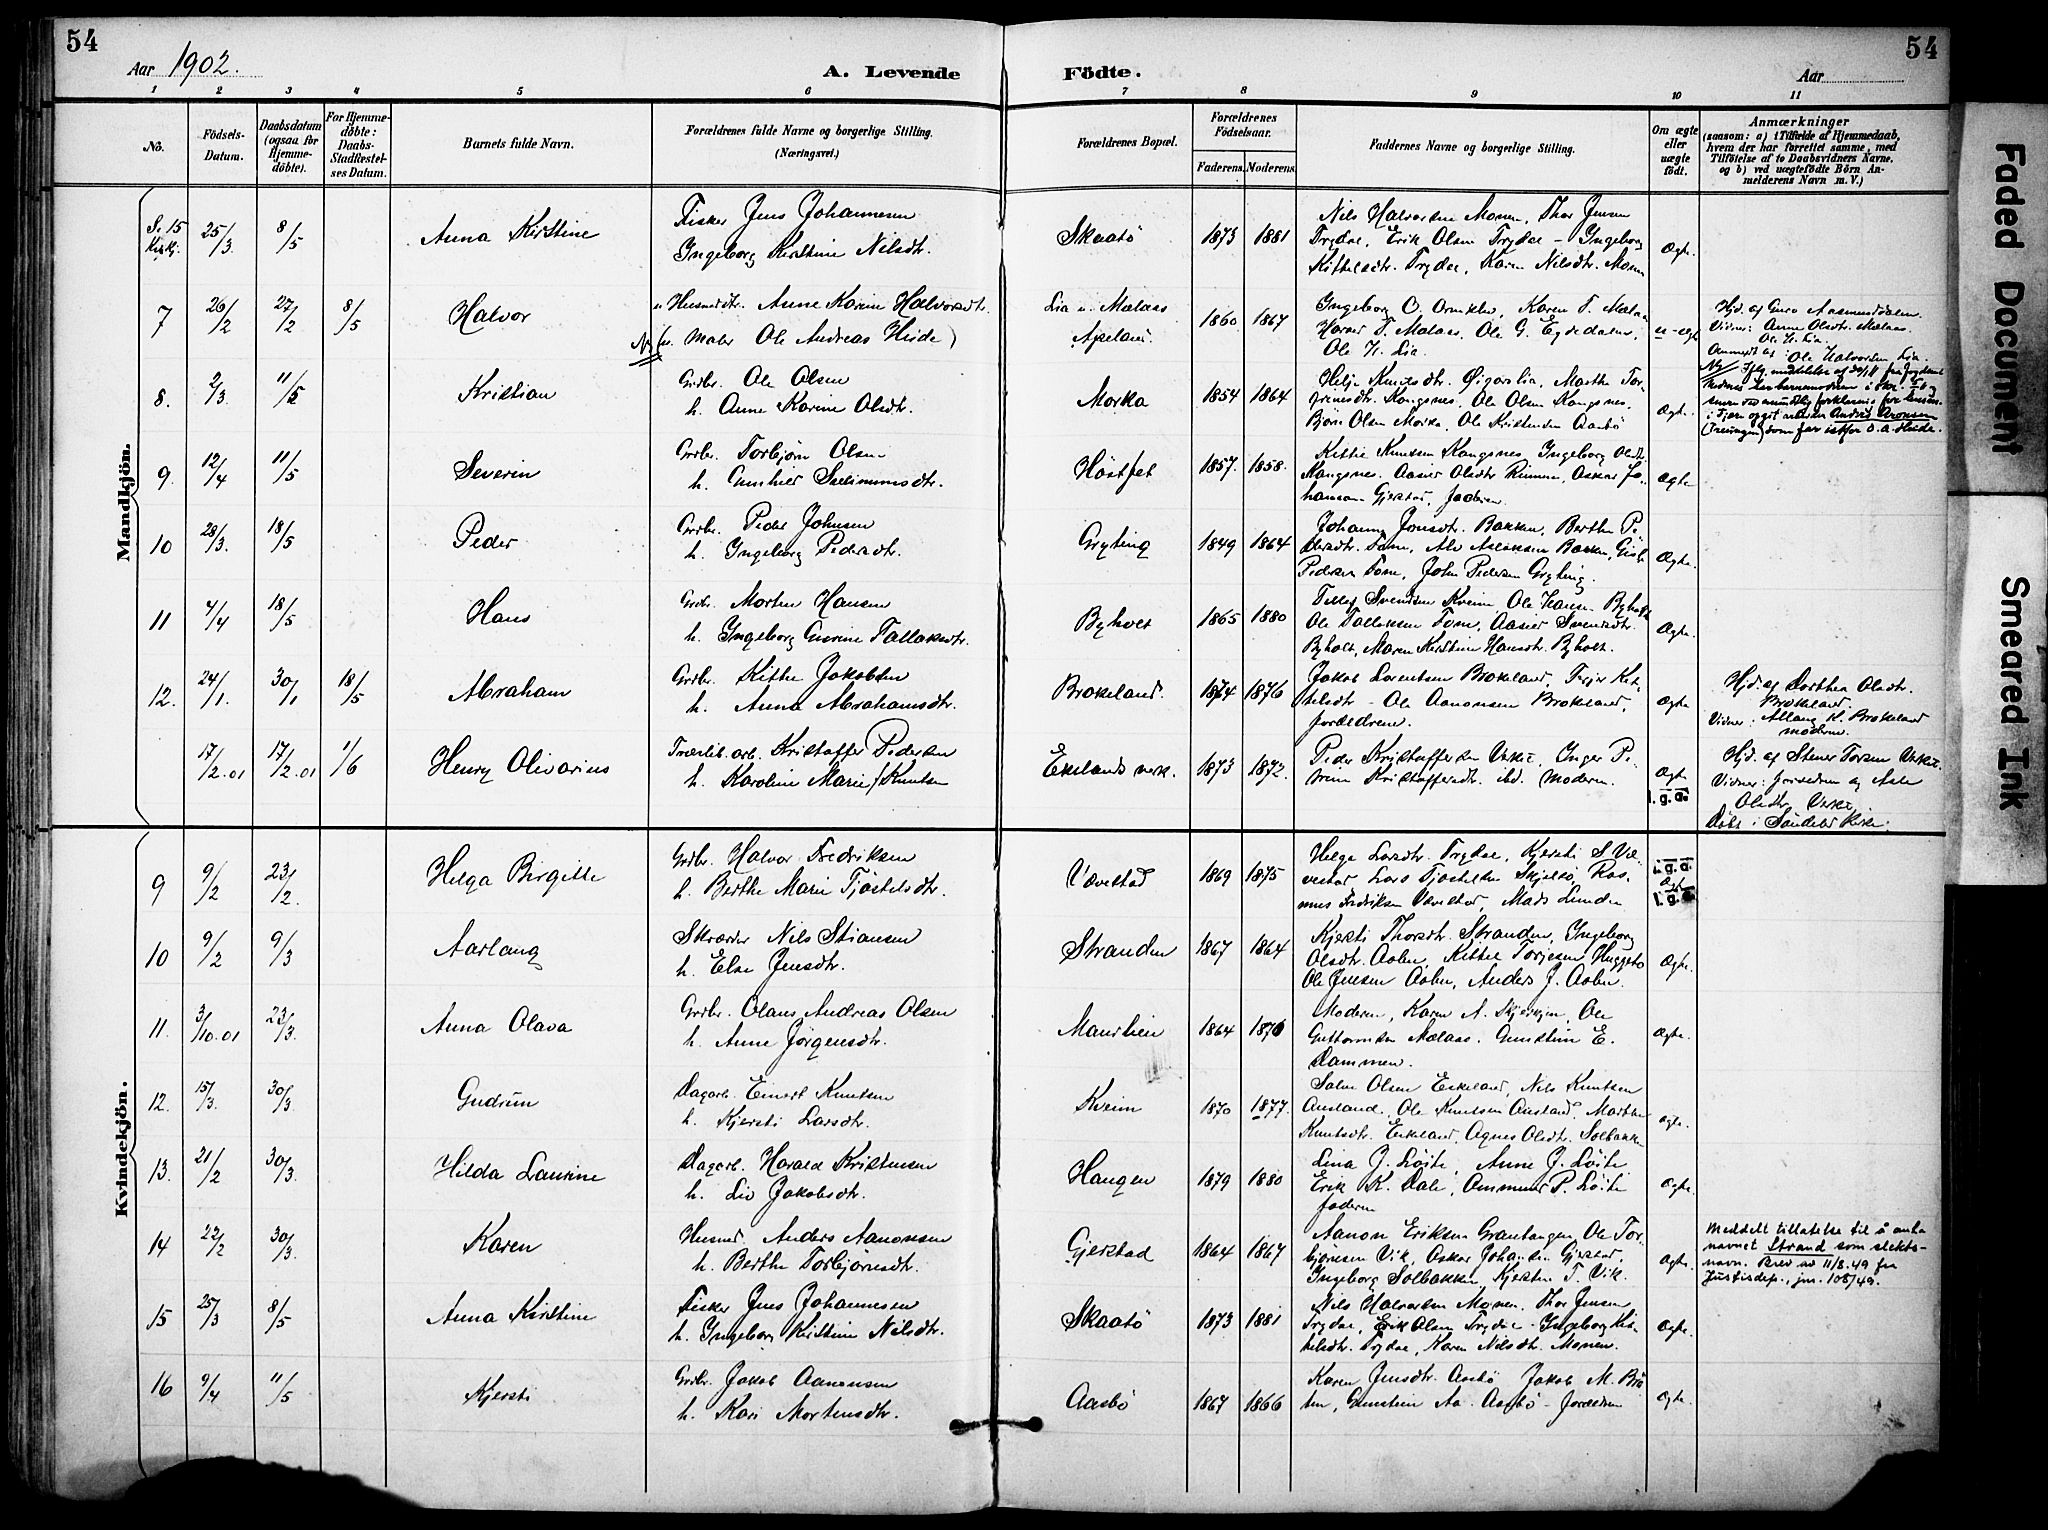 54
54
Aar 1902.
A. Levende
Födte.
Aar
1 2 3 4 5 6 7 8 9 10 11
No.
Födsels-Datum.
Daabsdatum (ogsaa for Hjemmedöbte).
For Hjemmedöbte: Daabs-Stadfæstelses Datum.
Barnets fulde Navn.
Forældrenes fulde Navne og borgerlige Stilling.
(Næringsvei.)
Forældrenes Bopæl.
Forældrenes Födselsaar.
Faderens. Moderens.
Faddernes Navne og borgerlige Stilling.
Om ægte eller uægte födt.
Anmærkninger
(saasom: a) i Tilfælde af Hjemmedaab, hvem der har forrettet samme, med Tilföielse af to Daabsvidners Navne. og b) ved uægtefödte Börn Anmelderens Navn m. V.)
Mandkjön.
S. 15 25/3 8/5 Anna Kirstine
Fisker Jens Johannesen
Ingeborg Kirstine Nilsdtr.
Skaatö 1873 1881
Nils Halvorsen Monen, Thor Jensen
Trydal, Erik Olsen Trydal - Ingeborg
Kittelsdtr. Trydal, Karen Nilsdtr. Monen
Ægte.
7 26/2 27/2 8/5 Halvor
Anne Karine Halvorsdtr.
Maler Ole Andreas Heide)
Lia u. Mælaas
1860 1867
Ole H. Lia
u-ægte
Hjd. af Guro Aasmundsdalen
Vidner: Anne Olsdtr. Mælaas
Ole H. Lia.
Anmeldt af: Ole Halvorsen Lia.
8. 2/3 11/5 Kristian
Grdbr. Ole Olsen
h. Anne Karine Olsdtr.
Morka 1854 1864
Kangsnes, Ole Olsen Kangsnes,
Björn Olsen Morka, Ole Kristensen Aasbö
Ægte.
9. 12/4 11/5 Severin
Grdbr. Torbjörn Olsen
h. Gunhild Salimunsdtr.
Höstfet 1857. 1858.
Kittil Knutsen Kangsnes, Ingeborg Olsdtr.
Kangsnes, Aasier Olsdtr Rimmen, Oskar Jo-
hansen Gjerstad, faderen.
Ægte
10 28/3. 18/5 Peder
Grdbr. Peder Johnsen
h. Ingeborg Pedersdtr.
Gryting 1849 1864
Johanne Jensdtr. Bakken, Berthe P-
edersdtr. Tom, Alv Aslaksen Bakken,
Pedersen Tom, John Pedersen Gryting.
Ægte.
11 4/4 18/5 Hans
Grdbr. Morten Hansen
h. Ingeborg Gurine Tallaksdtr.
Byholt 1865 1880
Tellef Svendsen Kveim Ole Hansen Byholt
Ole Tallaksen Tom, Aasier Svendsdtr.
Byholt, Maren Kirstine Hansdtr. Byholt.
Ægte.
12. 24/1. 30/1 18/5 Abraham
Grdbr. Kittil Jakobsen
h. Anna Abrahamsdtr.
Brokeland. 1874 1876
Jakob Lorentsen Brokeland, Terjer Kit-
telsdtr - Ole Aanonsen Brokeland,
forældrene.
Ægte
Hjd. af Dorthea Olsdtr.
Brokeland.
Vidner: Allang K. Brokeland
moderen.
17/2.01 17/2.01 1/6 Henry Olivarius
Træslib. arb. Kristoffer Pedersen
h. Karoline Marie Knutsen
Egelands verk. 1873 1872.
Peder Kristoffersen Verket, Inger Pe-
trine Kristoffersdtr. ibd. Moderen.
Ægte
i. g. a.
Hjd. af Stener Torsen Verket.
Vidner: forældrene og Asle
Olsdtr. Verket.
Döbt i Söndeled Kirke.
Kvindekjön.
9 9/2 23/2. Helga Birgitte
Grdbr. Halvor Fredriksen
h. Berthe Marie Tjöstelsdtr.
Vævestad 1869 1875
Helge Larsdtr. Trydal, Kjersti S. Væ-
vestad Lars Tjöstelsen Skjelbö, Ras-
mus Fredriksen Vævestad, Mads Lunden
i. g. a.
Ægte
i. g. a.
10 9/2 9/3 Aarlaug
Skræder Nils Stiansen
h. Else Jensdtr.
Stranden 1867 1864
Kjersti Thorsdtr. Stranden, Ingeborg
Olsdtr. Aasbö, Kittel Torjesen Huggeto
Ole Jensen Aasbö, Anders J. Aasbö.
Ægte.
11. 3/10.01 23/3. Anna Olava
Grdbr. Olaus Andreas Olsen
h. Anne Jörgensdtr.
Maurlien 1864 1871
Moderen, Karen A. Skjerkjen, Ole
Guttormsen Mælaas, Gunstein E.
Dammen.
Ægte.
12. 15/3. 30/3 Gudrun
Dagarb. Einert Knutsen
h. Kjersti Larsdtr.
Kveim 1870 1877.
Salve Olsen Eskeland, Nils Knutsen
Ausland, Ole Knutsen Ausland, Marthe
Knutsdtr. Eskeland, Agnes Olsdtr. Solbakken
ægte.
13. 21/2 30/3. Hilda Laurine
Dagarb. Harald Kristensen
h. Liv Jakobsdtr.
Haugen 1879 1880
Lina J. Löite, Anne J. Löite
Erik K. Dale, Ommund P. Löite
faderen
Ægte.
14 22/2 30/3. Karen
Husmd. Anders Aanonsen
h. Berthe Torbjörnsdtr.
Gjerstad 1864 1867
Aanon Eriksen Grautangen Ole Tor-
björnsen Vik, Oskar Johansen Gjerstad,
Ingeborg Solbakken, Kjersten T. Vik.
Ægte.
Meddelt tillatelse til å anta
navnet Strand som slekts-
navn. Brev av 11/8.49 fra
Justisdep., jnr. 108/49.
15 25/3 8/5 Anna Kirstine
Fisker Jens Johannesen
h. Ingeborg Kirstine Nilsdtr.
Skaatö 1873 1881
Nils Halvorsen Monen. Thor Jensen
Trydal, Erik Olsen Trydal - Ingeborg Kit-
telsdtr. Trydal, Karen Nilsdtr. Monen.
Ægte.
16 9/4 11/5 Kjersti
Grdbr. Jakob Aanonsen
h. Kari Mortensdtr.
Aasbö 1867 1866
Karen Jensdtr. Aasbö Jakob M. Brå-
ten, Gunstein Aa. Aasbö - forældrene
Ægte.
Faded Document
Smeared Ink